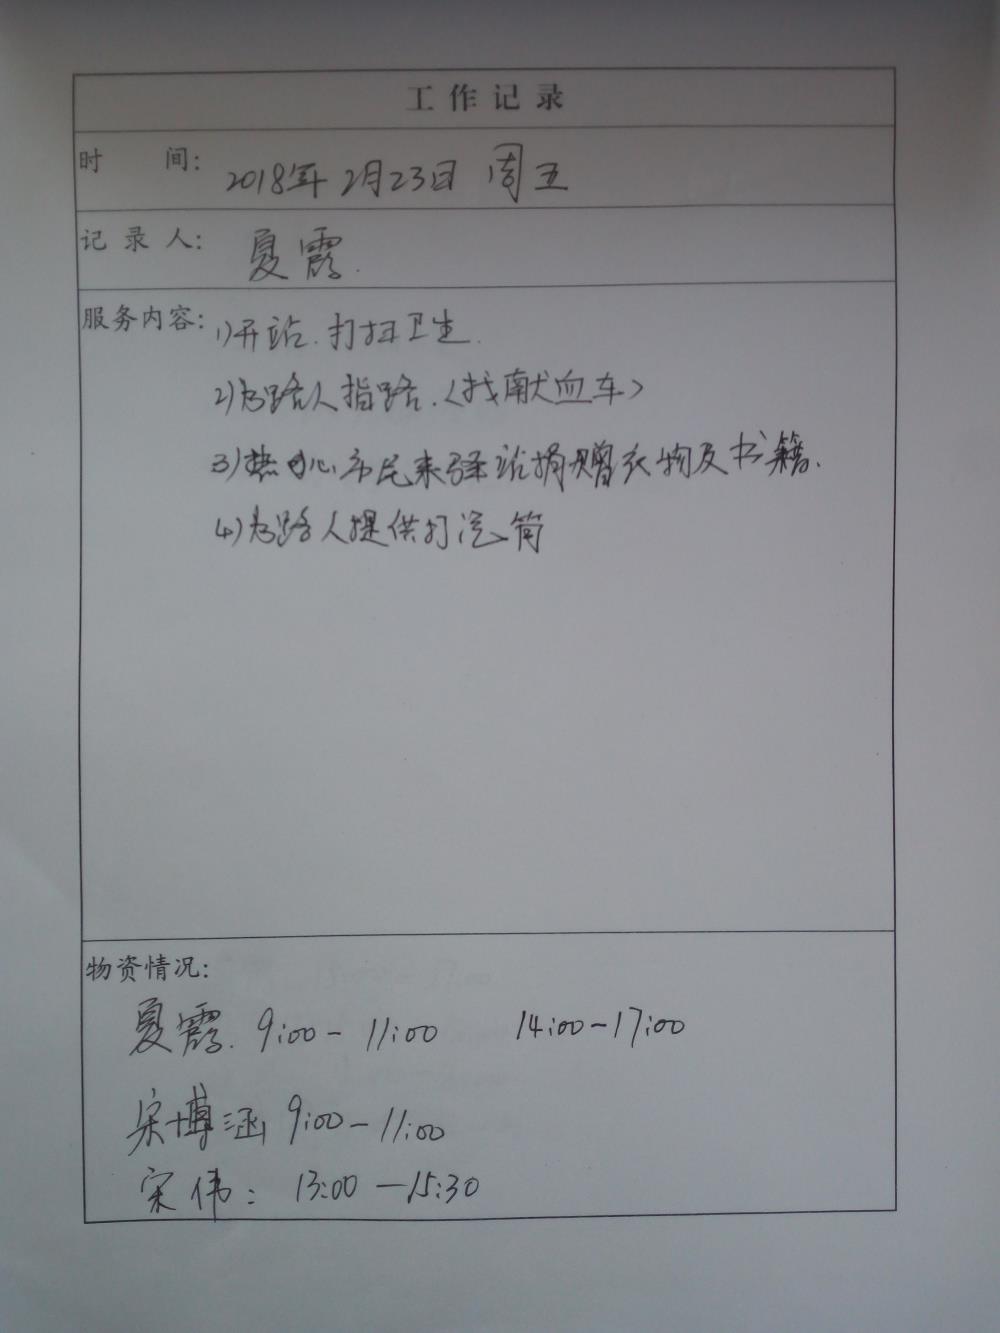 工作记录
时 间: 2018年2月23日 周五
记录人: 夏霞.
服务内容: 1)开站.打扫卫生.
2)为路人指路.<找献血车>
3)热心市民来驿站捐赠衣物及书籍.
4)为路人提供打汽筒
物资情况:
夏霞. 9:00-11:00 14:00-17:00
宋博涵 9:00-11:00
宋伟: 13:00-15:30